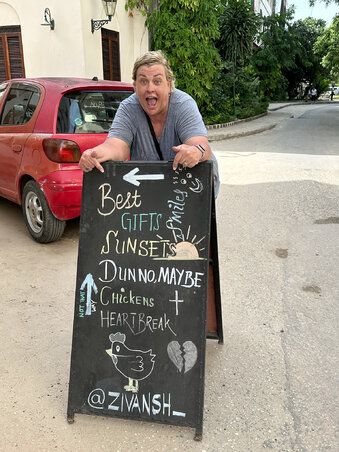 Best
GIFTS
Smiles
SUNSETS
DUNNO, MAYBE
Chickens
HEARTBREAK
NOT THAT WAY
@ZIVANSH_